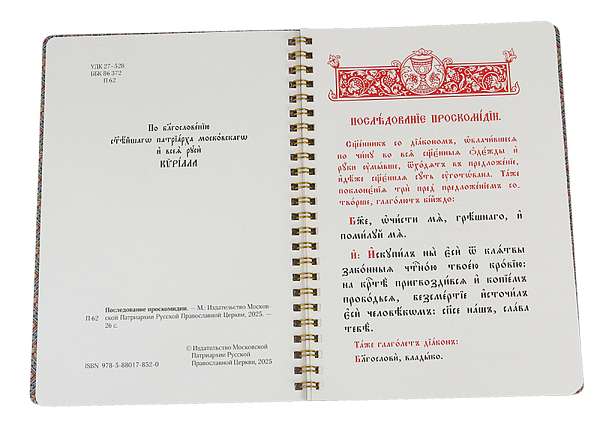 УДК 27-528
ББК 86.372
П 62
По бл҃гослове́нїю
ст҃ѣ́йшагѡ патрїа́рха моско́вскагѡ
и҆ всеѧ̀ рꙋсѝ
КѴРІ́ЛЛА
Последование проскомидии. — М.: Издательство Москов-
П 62 ской Патриархии Русской Православной Церкви, 2025. —
26 с.
© Издательство Московской
Патриархии Русской
Православной Церкви, 2025
ISBN 978-5-88017-852-0
ПОСЛѢ́ДОВАНЇЕ ПРОСКОМИ́ДЇИ.
Сщ҃е́нникъ со дїа́кономъ, ѡ҆блачи́вшисѧ
по чи́нꙋ во всѧ̑ сщ҃є́нныѧ ѻ҆дє́жды и҆
рꙋ́ки ᲂу҆мы́вше, вхо́дѧтъ въ предложе́нїе,
и҆дѣ́же сщ҃є́ннаѧ сꙋ́ть ᲂу҆гото́вана. Та́же
поклонє́нїѧ трѝ пред̾ предложе́нїемъ со-
тво́рше, глаго́лютъ кі́йждо:
Бж҃е, ѡ҆чи́сти мѧ̀, грѣ́шнаго, и҆
поми́лꙋй мѧ̀.
И҆: И҆скꙋпи́лъ ны̀ є҆сѝ ѿ клѧ́твы
зако́нныѧ чⷭ҇тно́ю твое́ю кро́вїю:
на крⷭ҇тѣ̀ пригвозди́всѧ и҆ копїе́мъ
пробо́дсѧ, безсме́ртїе и҆сточи́лъ
є҆сѝ человѣ́кѡмъ: сп҃се на́шъ, сла́ва
тебѣ̀.
Та́же глаго́летъ дїа́конъ:
Благословѝ, влады́ко.